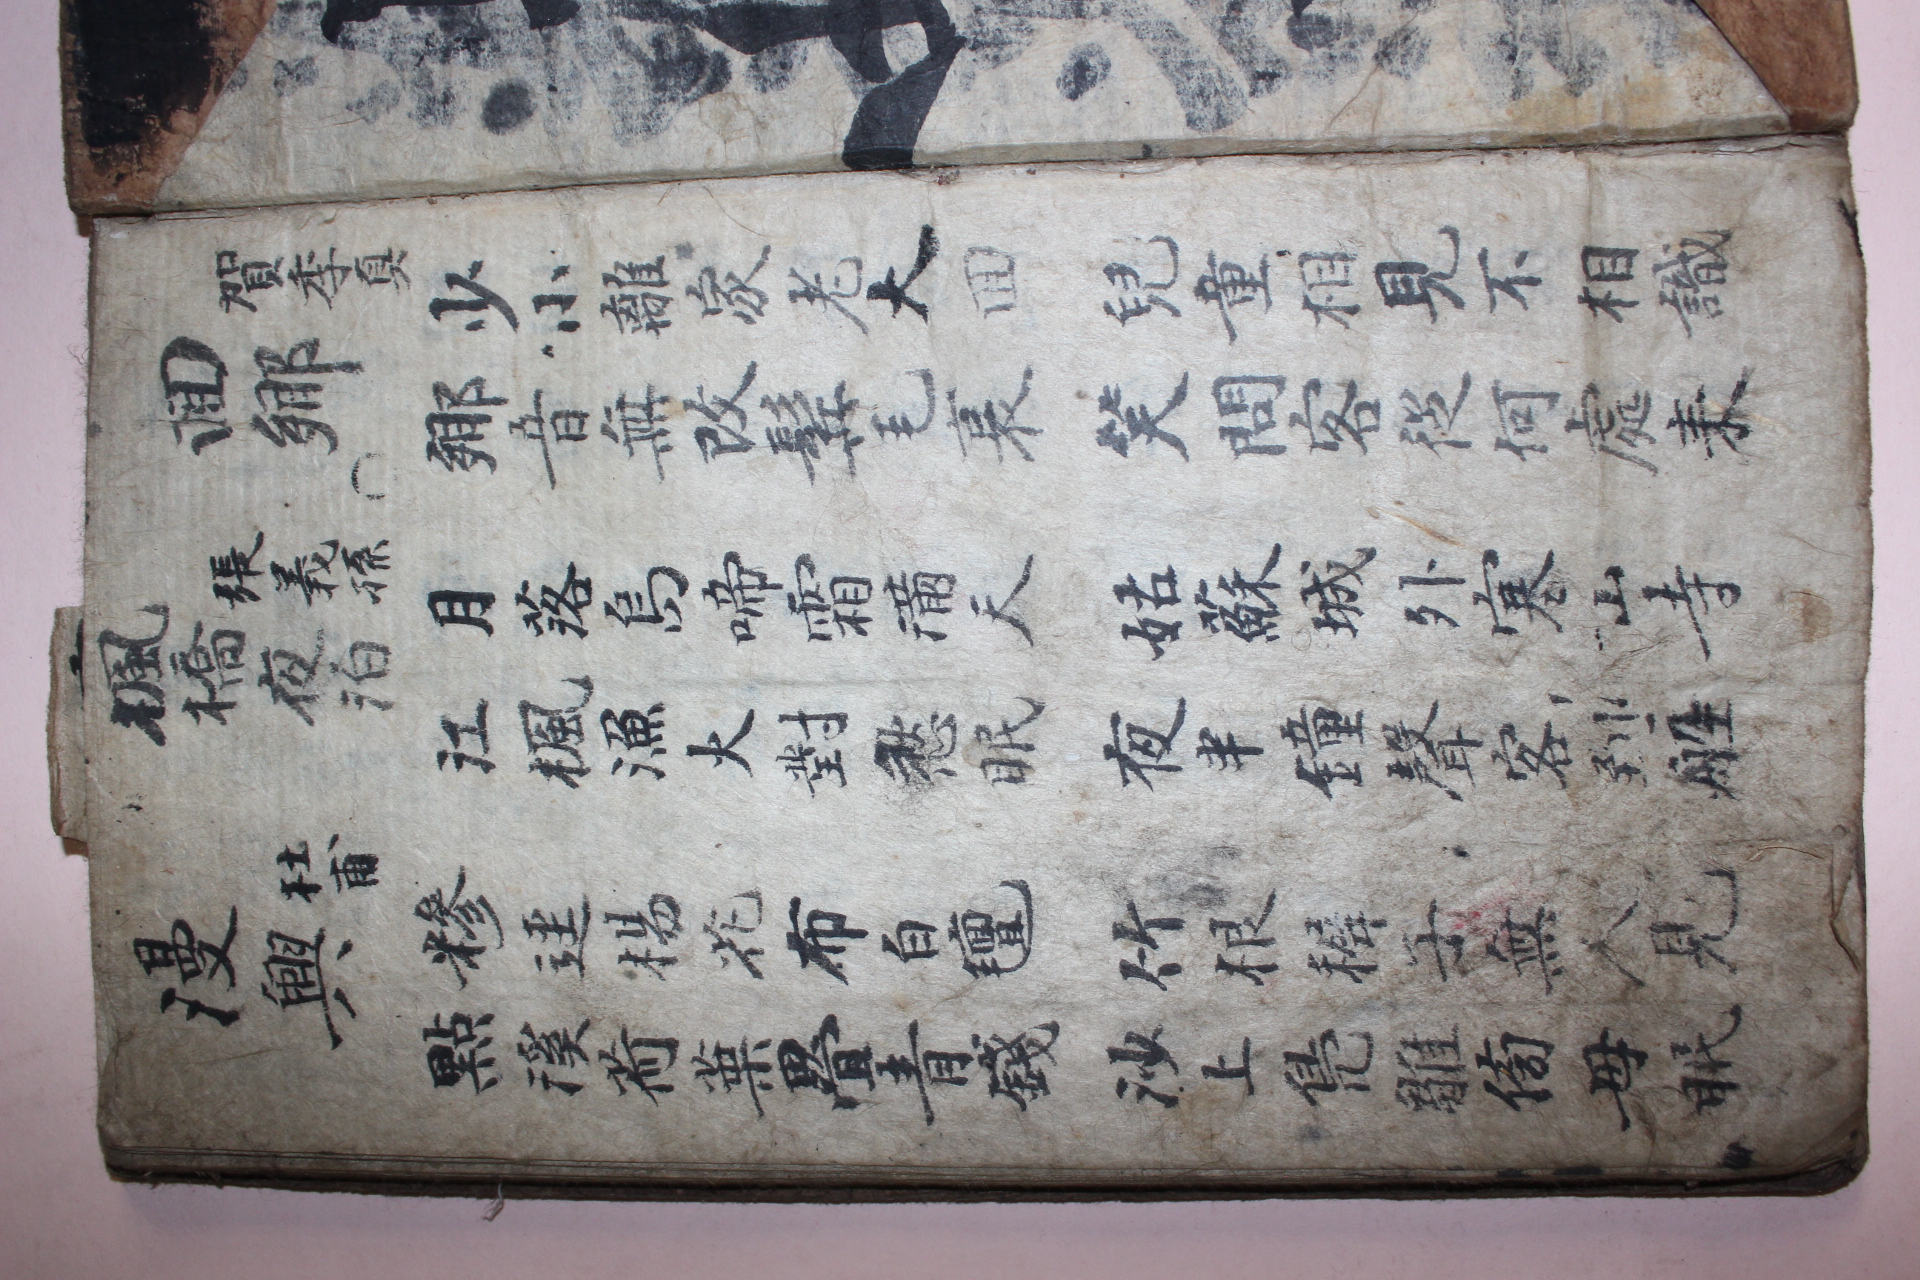 迴鄕 賀季眞
少小離家老大回 兒童相見不相識
鄕音無改鬢毛衰 笑問客從何處来
楓橋夜泊 張義孫
月落烏啼霜滿天 姑蘇城外寒山寺
江楓漁火對愁眠 夜半鍾聲客到
漫興 杜甫
糝逕楊花布白氈 竹根稚子無人見
點溪荷葉疊青錢 沙上鳧雛傍母眠